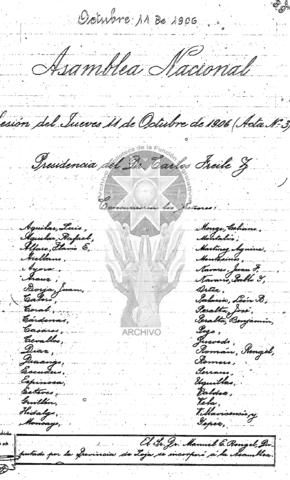 Octubre 11 De 1906
Asamblea Nacional
Sesión del Jueves 11 de Octubre de 1906 (Acta Nº 3)
Presidencia del Dr. Carlos Freile Z
Concurrieron los Señores:
Aguilar, Luis,
Aguilar, Rafael,
Alfaro, Flavio E,
Arellano,
Ayora,
Borja, Juan,
Coral,
Cárdenas,
Casares,
Cevallos,
Díaz,
Escudero,
Espinosa,
Hidalgo,
Moncayo,
Monge, Celiano,
Montalvo,
Martínez Aguirre,
Navarro, Juan F,
Navarro, Pablo I,
Ortiz,
Peralta, José,
Peralta, Benjamín,
Quevedo,
Román, Rengel,
Romero,
Serrano,
Valdez,
Vela,
Villavicencio y
Yépez,
ARCHIVO
El Sr. Dr. Manuel E. Rengel, Di-
putado por la Provincia de Loja, se incorporó á la Asamblea.